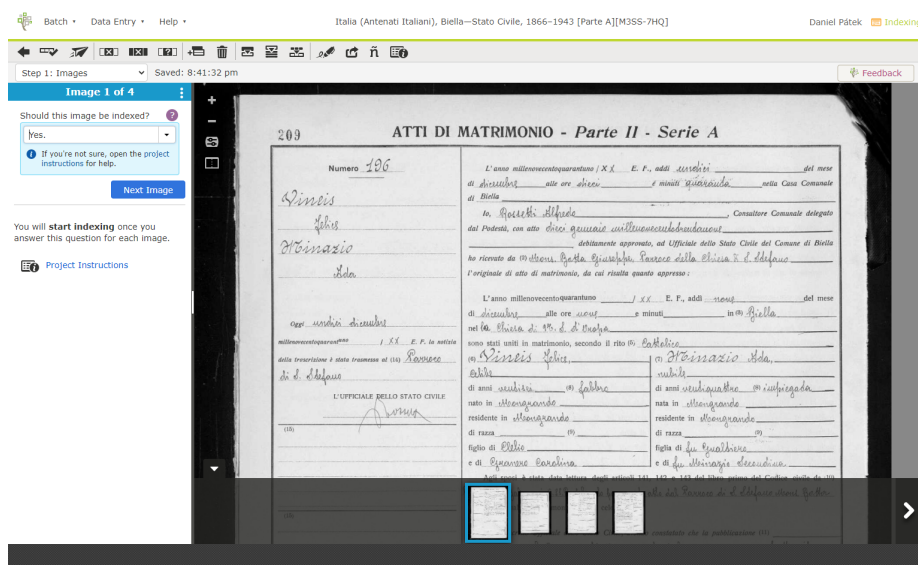 Batch Data Entry Help
Italia (Antenati Italiani), Biella—Stato Civile, 1866–1943 [Parte A][M3SS-7HQ]
Daniel Pátek Indexing
Step 1: Images
Saved: 8:41:32 pm
Feedback
Image 1 of 4
Should this image be indexed? ?
Yes.
If you're not sure, open the project
instructions for help.
Next Image
You will start indexing once you
answer this question for each image.
Project Instructions
209 ATTI DI MATRIMONIO - Parte II - Serie A
Numero 196
Vineis
Felice
Ottinazio
Ada
Oggi undici dicembre
millenovecentoquarantuno / XX E. F. la notizia
della trascrizione è stata trasmessa al (14) Parroco
di S. Stefano
L'UFFICIALE DELLO STATO CIVILE
(15)
(15)
L'anno millenovecentoquarantuno / XX E. F., addì undici del mese
di dicembre alle ore dieci e minuti quaranta nella Casa Comunale
di Biella
Io, Rossetti Alfredo, Consultore Comunale delegato
dal Podestà, con atto dieci gennaio millenovecentotrentanove
debitamente approvato, ad Ufficiale dello Stato Civile del Comune di Biella
ho ricevuto da (2) Mons. Botta Giuseppe, Parroco della Chiesa di S. Stefano
l'originale di atto di matrimonio, da cui risulta quanto appresso:
L'anno millenovecentoquarantuno / XX E. F., addì nove del mese
di dicembre alle ore nove e minuti in (3) Biella
nella Chiesa di d'Oropa
sono stati uniti in matrimonio, secondo il rito (5) Cattolico
(6) Vineis Felice, (7) Ottinazio Ada,
celibe nubile
di anni ventisei (8) fabbro di anni ventiquattro (9) impiegata
nato in Mongrando nata in Mongrando
residente in Mongrando residente in Mongrando
di razza (9) di razza (9)
figlio di figlia di fu Gualtiero
e di Carolina e di fu Secondina
Agli sposi è stata data lettura degli articoli 141, 142 e 143 del libro primo del Codice civile da (10)